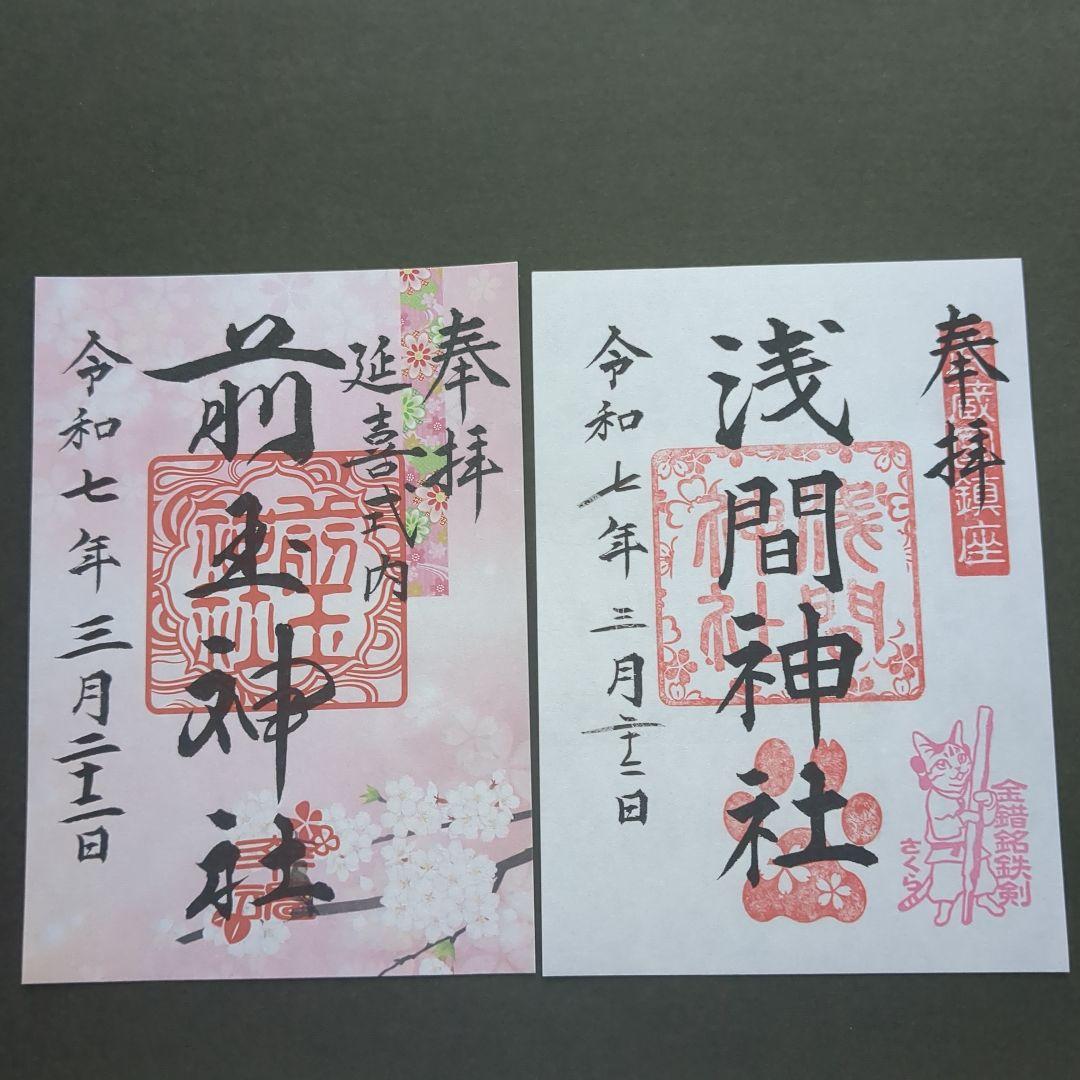 奉拝
延喜式内
前玉神社
前玉神社
令和七年三月二十二日
奉拝
鎮座
浅間神社
浅間神社
令和七年三月二十二日
金錯銘鉄剣
さくら